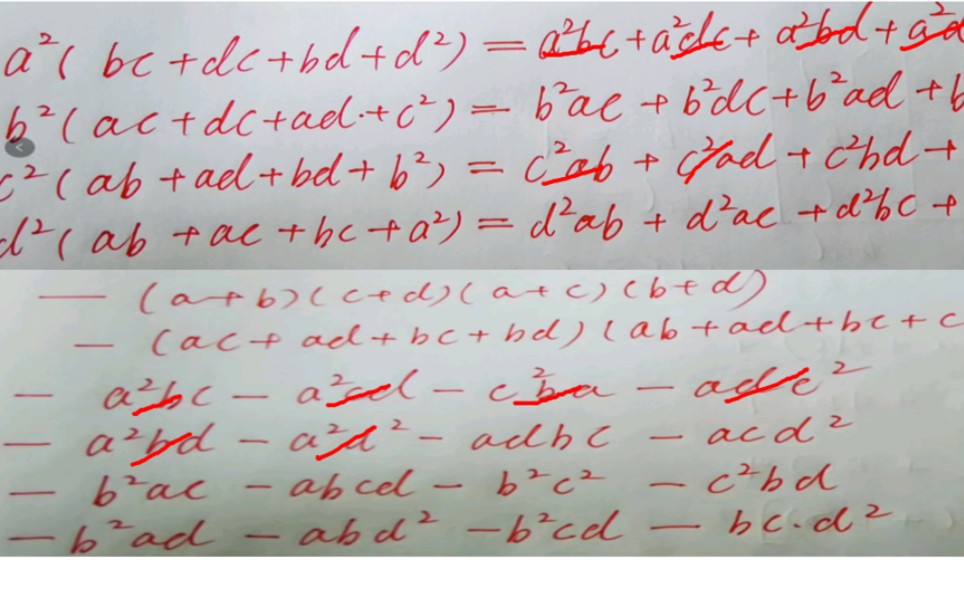 a²( bc + dc + bd + d²) = a²bc + a²dc + a²bd + a²d
b²( ac + dc + ad + c²) = b²ac + b²dc + b²ad + b
c²( ab + ad + bd + b²) = c²ab + c²ad + c²bd +
d²( ab + ac + bc + a²) = d²ab + d²ac + d²bc +
— (a+b)(c+d)(a+c)(b+d)
— (ac + ad + bc + bd)(ab + ad + bc + c
— a²bc — a²cd — c²ba — adc²
— a²bd — a²d² — adbc — acd²
— b²ac — abcd — b²c² — c²bd
— b²ad — abd² — b²cd — bc·d²